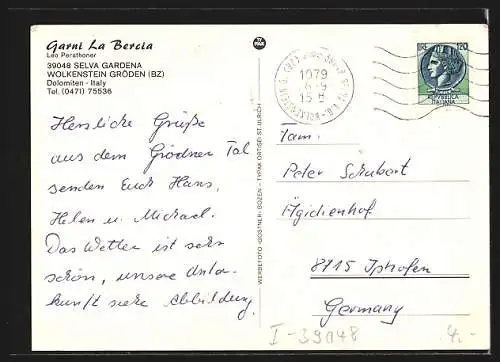 Garni La Bercia
Leo Perathoner
39048 SELVA GARDENA
WOLKENSTEIN GRÖDEN (BZ)
Dolomiten - Italy
Tel. (0471) 75536
Herzliche Grüße
aus dem Grödner Tal
senden Euch Hans,
Helen u. Michael.
Das Wetter ist sehr
schön, unsere Unter-
kunft siehe Abbildung.
WERBEFOTO «GOSTNER» BOZEN - TYPAK ORTISEI-ST. ULRICH
TY
PAK
1979
15
120
REPUBBLICA
ITALIANA
Fam.
Peter Schubert
Ägidienhof
8715 Iphofen
Germany
I-39048
4.-